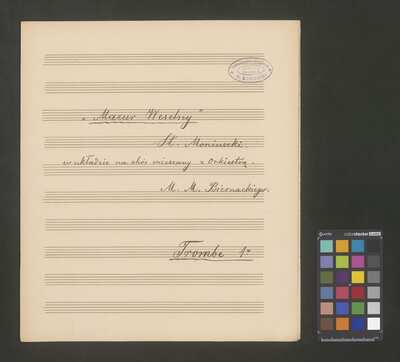 „Mazur Weselny"
St. Moniuszki
w układzie na chór mieszany z Orkiestrą.
M. M. Biernackiego.
Trombe 1º